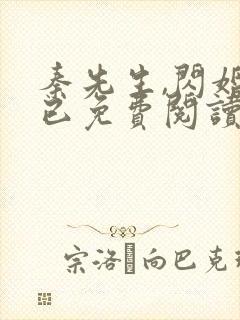 秦先生,閃婚
已免費閱讀
宗洛 向巴克